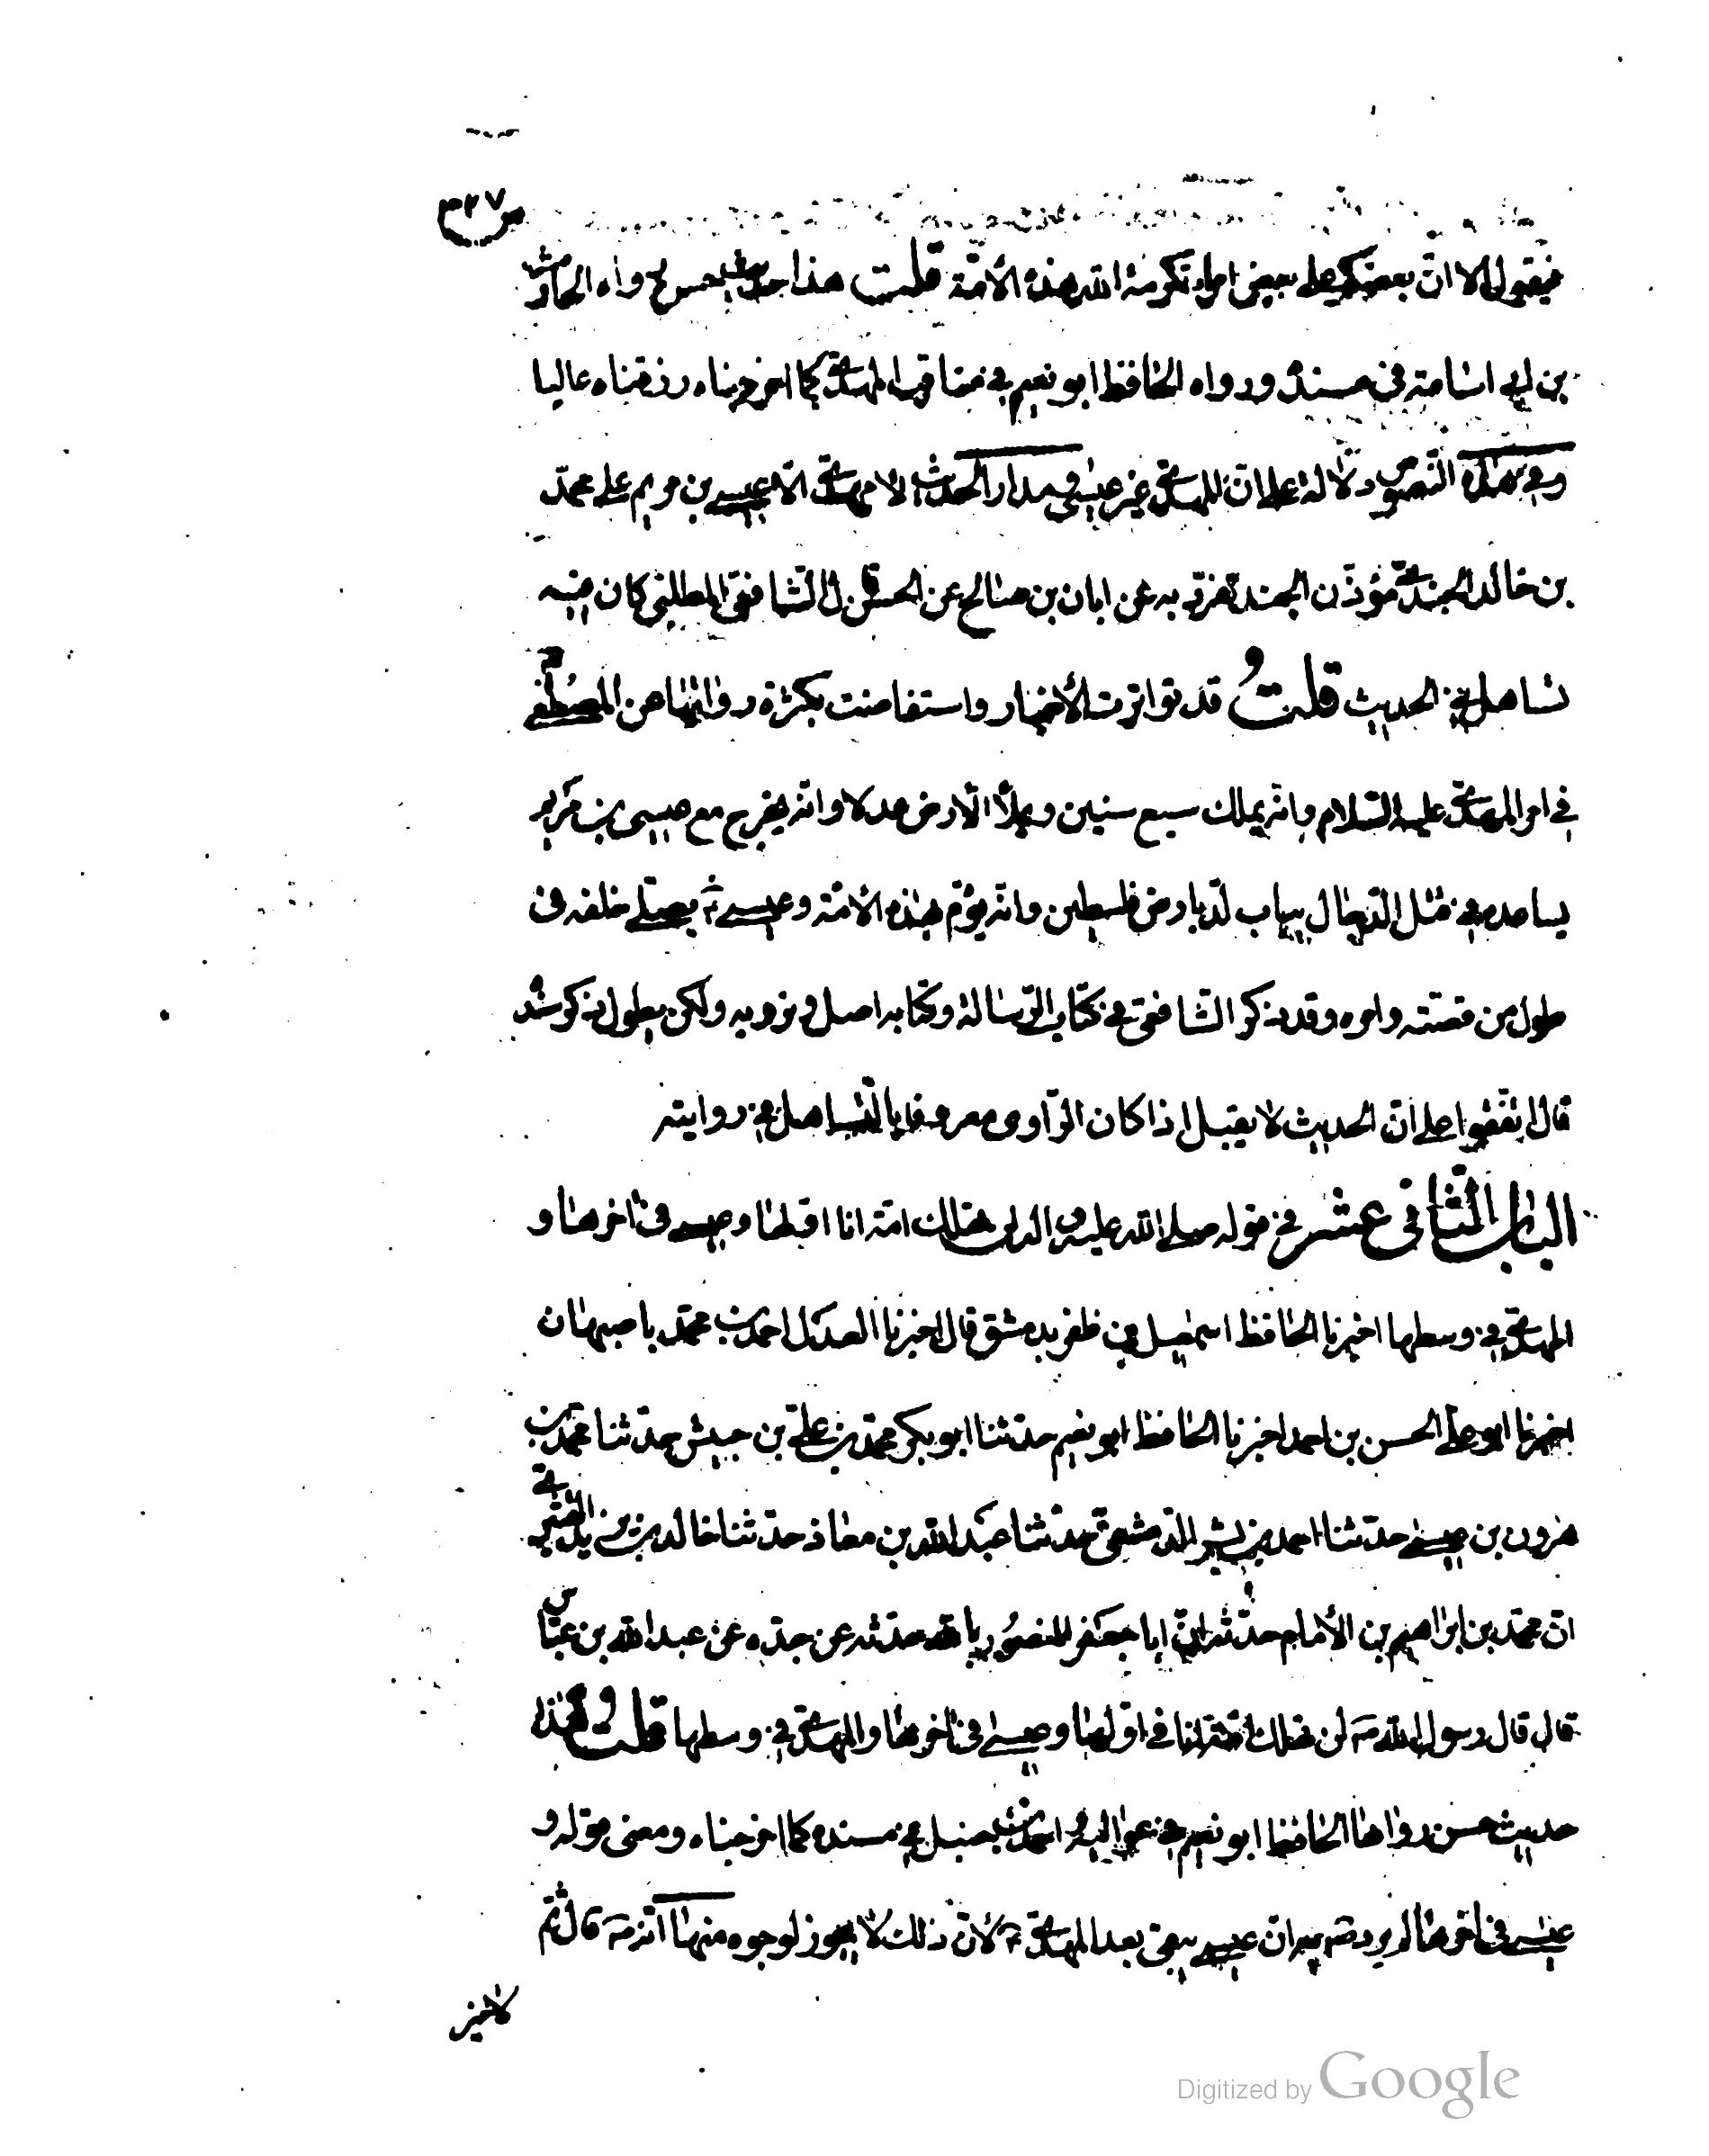 ص٣٢٧
فيقول الا ان بعضكم على بعض امراء تكرمة الله هذه الأمّة قلت هذا حديث حسن رواه الحارث
بن ابى اسامة فى مسنده ورواه الحافظ ابو نعيم فى مناقب المهدىّ كما اخرجناه رزقناه عاليا
وفى هذه النصوص دلالة على انّ المهدىّ غير عيسى ومدار الحديث لا مهدىّ الّا عيسى بن مريم على محمّد
بن خالد الجندىّ مؤذّن الجند تفرّد به عن ابان بن صالح عن الحسن قال الشافعىّ المطلبى كان فيه
تساهل فى الحديث قلتُ قد تواترت الأخبار واستفاضت بكثرة رواتها عن المصطفى ص
فى امر المهدىّ عليه السّلام وانّه يملك سبع سنين ويملأ الأرض عدلا وانّه يخرج مع عيسى بن مريم
يساعده فى قتل الدّجّال بباب لدّ بارض فلسطين وانّه يؤمّ هذه الأمّة وعيسى ع يصلّى خلفه فى
طول من قصّته وامره وقد ذكر الشّافعىّ فى كتاب الرّسالة وكتابه اصل ونرويه ولكن يطول ذكر سنده
قال اتّفقوا على انّ الحديث لا يقبل اذا كان الرّاوى معروفا بالتّساهل فى روايته
الباب الثّانى عشر فى قوله صلى الله عليه و اله لن تهلك امّة انا اوّلها وعيسى فى اخرها و
المهدىّ فى وسطها اخبرنا الحافظ اسمعيل بن ظفر بدمشق قال اخبرنا العدل احمد بن محمّد باصبهان
اخبرنا ابو علىّ الحسن بن احمد اخبرنا الحافظ ابو نعيم حدثنا ابو بكر محمّد بن علىّ بن حبيش حدّثنا محمّد بن
هرون بن عيسى حدّثنا احمد بن بشير الدّمشقىّ حدّثنا عبد الله بن معاذ حدّثنا خالد بن يزيد القشيرى
انّ محمّد بن ابراهيم بن الأمام حدّثه انّ ابا جعفر المنصور بالله حدّثه عن جدّه عن عبد الله بن عبّاس
قال قال رسول الله ص لن تهلك امّة انا فى اوّلها وعيسى فى اخرها والمهدىّ فى وسطها قلتُ هذا
حديث حسن رواها الحافظ ابو نعيم فى عواليه و احمد بن حنبل فى مسنده كما اخرجناه ومعنى قوله و
عيسى فى اخرها لم يرد ص به ان عيسى يبقى بعد المهدىّ ع لأنّ ذلك لا يجوز لوجوه منها انّه ص قال ثم
لا خير
Digitized by Google